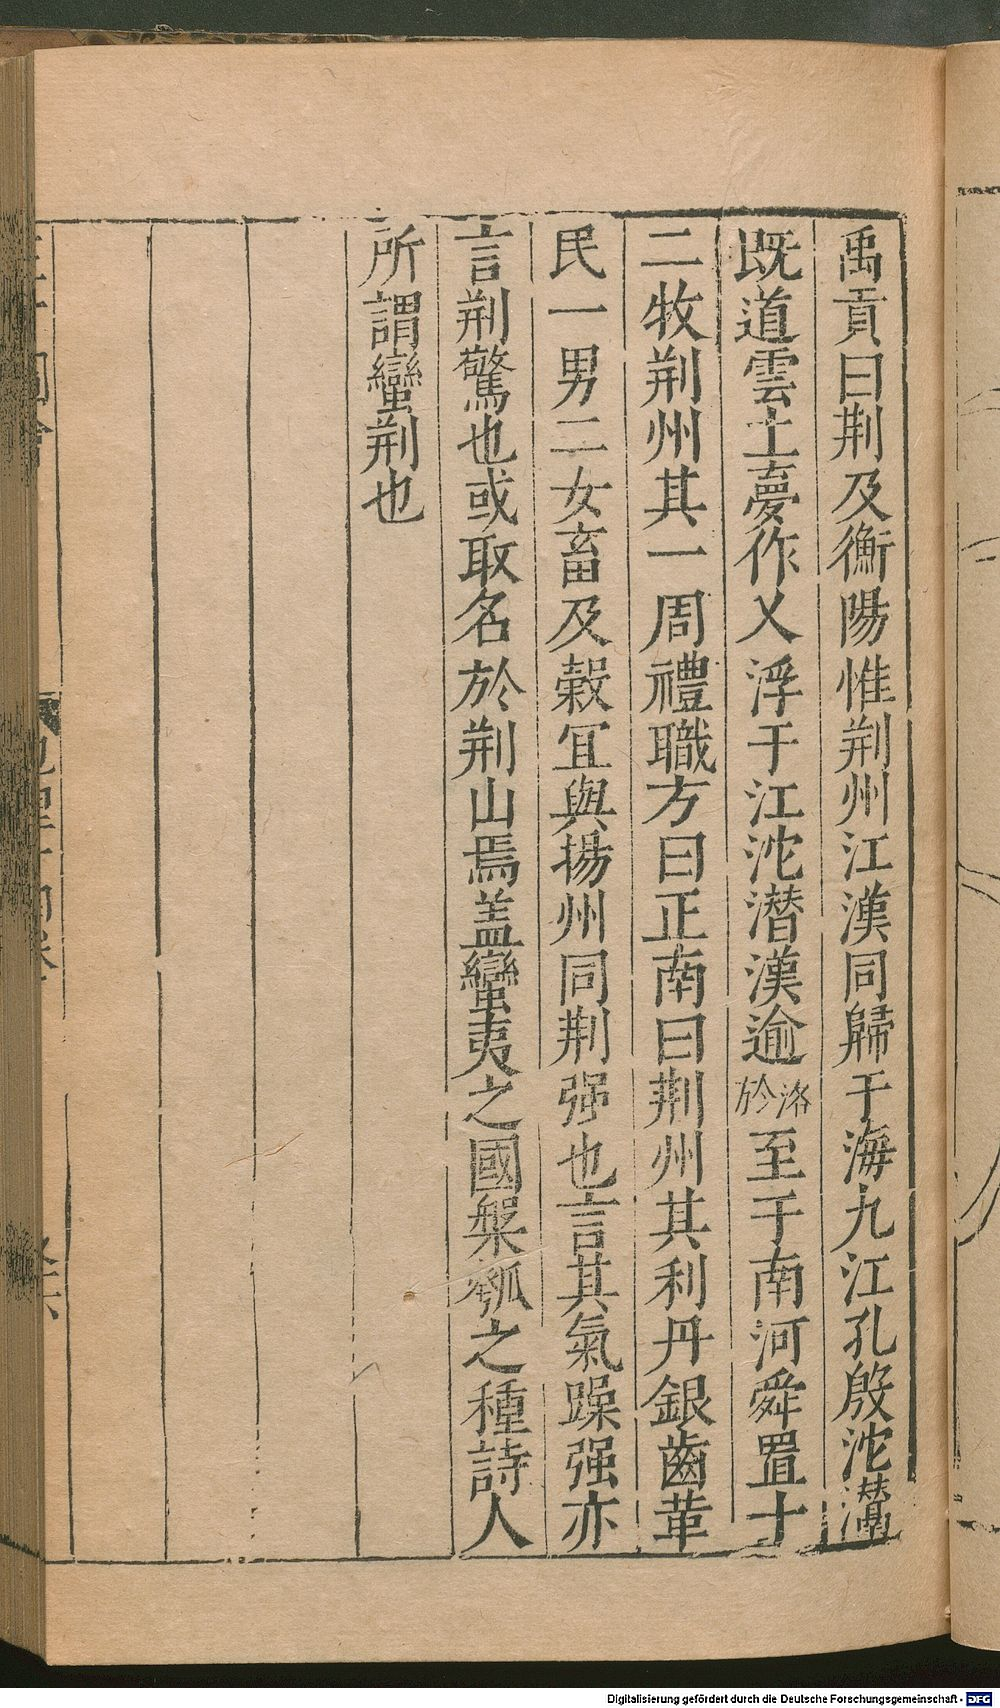 禹貢曰荆及衡陽惟荆州江漢同歸于海九江孔殷沱灊
既道雲土夢作乂浮于江沱潜漢逾於洛至于南河舜置十
二牧荆州其一周禮職方曰正南曰荆州其利丹銀齒革
民一男二女畜及穀冝與揚州同荆强也言其氣躁强亦
言荆驚也或取名於荆山焉盖蠻夷之國槃瓠之種詩人
所謂蠻荆也
Digitalisierung gefördert durch die Deutsche Forschungsgemeinschaft - DFG